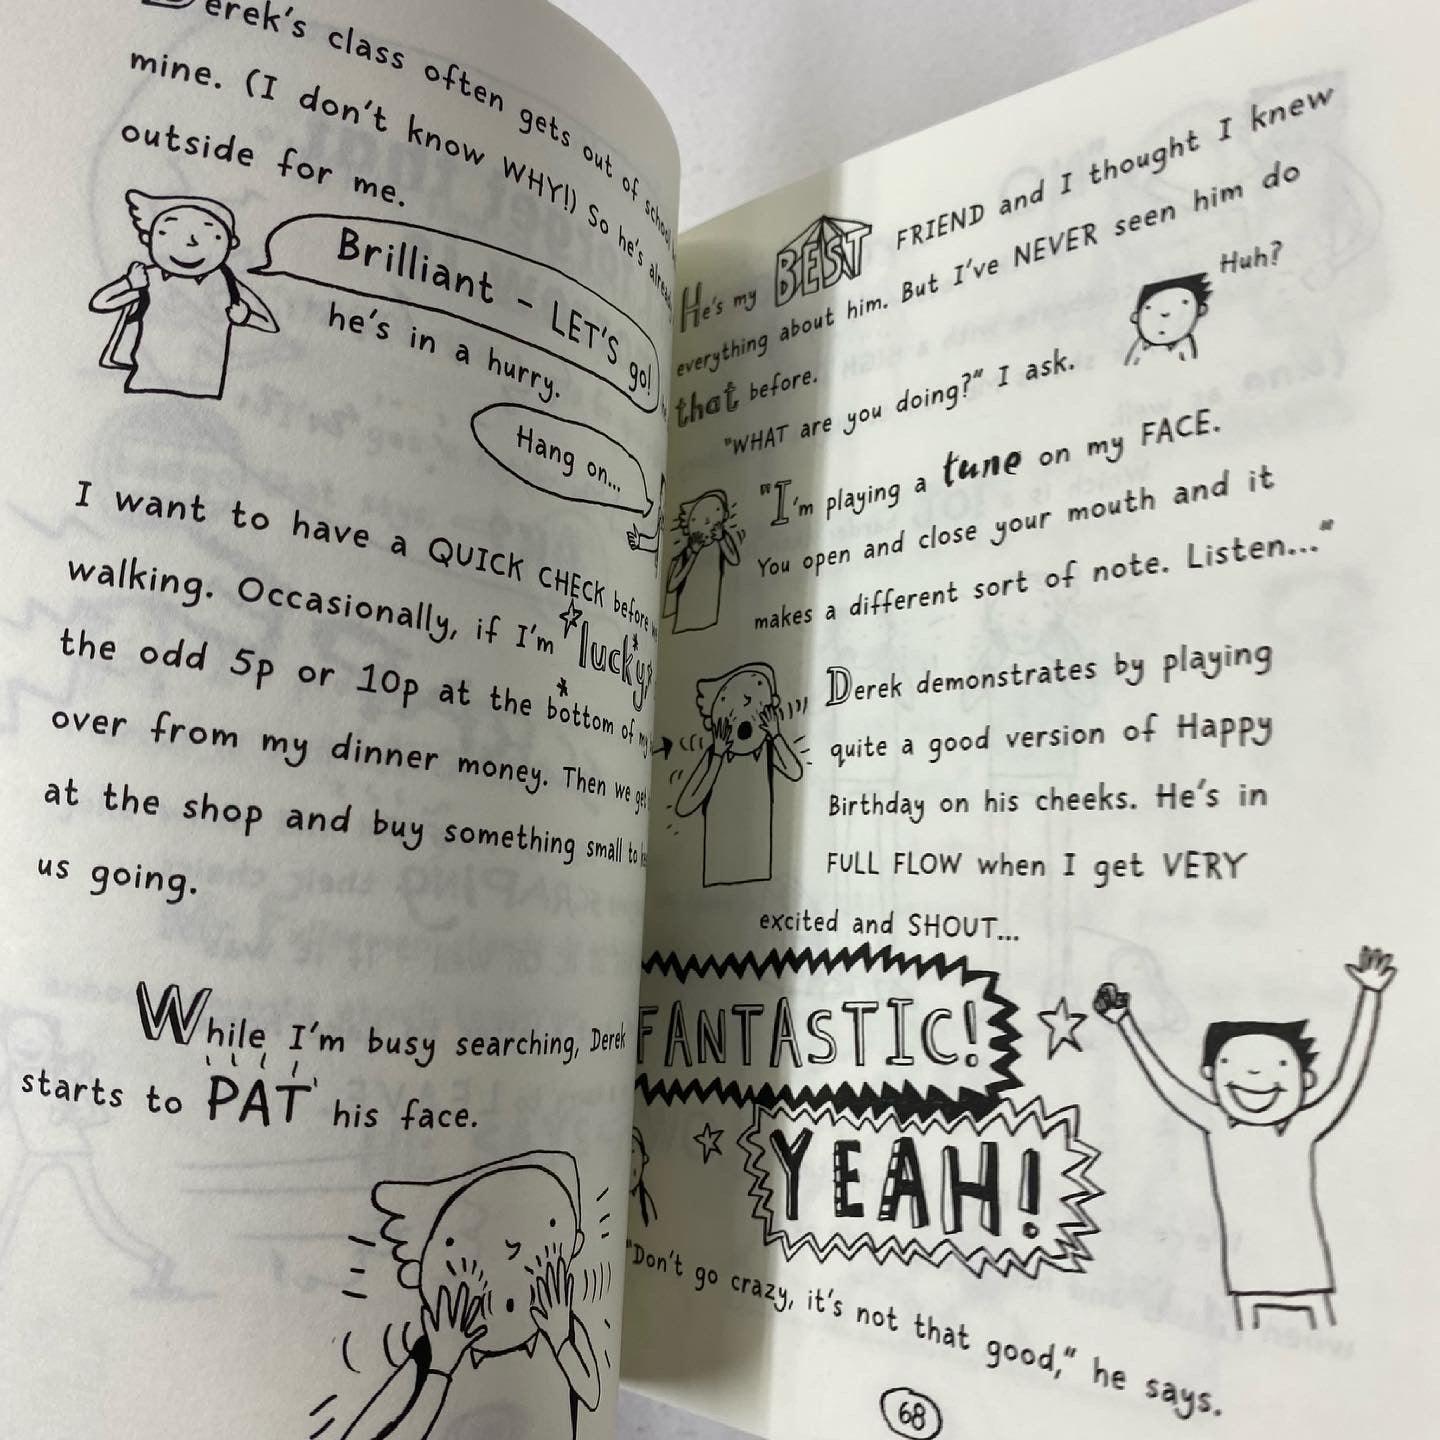 Derek's class often gets out of school
mine. (I don't know WHY!) So he's already
outside for me.
Brilliant - LET'S go!
he's in a hurry.
Hang on...
I want to have a QUICK CHECK before
walking. Occasionally, if I'm lucky,
the odd 5p or 10p at the bottom of my
over from my dinner money. Then we get
at the shop and buy something small to
us going.
While I'm busy searching, Derek
starts to PAT his face.
He's my BEST FRIEND and I thought I knew
everything about him. But I've NEVER seen him do
that before.
Huh?
"WHAT are you doing?" I ask.
"I'm playing a tune on my FACE.
You open and close your mouth and it
makes a different sort of note. Listen..."
Derek demonstrates by playing
quite a good version of Happy
Birthday on his cheeks. He's in
FULL FLOW when I get VERY
excited and SHOUT...
FANTASTIC!
YEAH!
"Don't go crazy, it's not that good," he says.
68